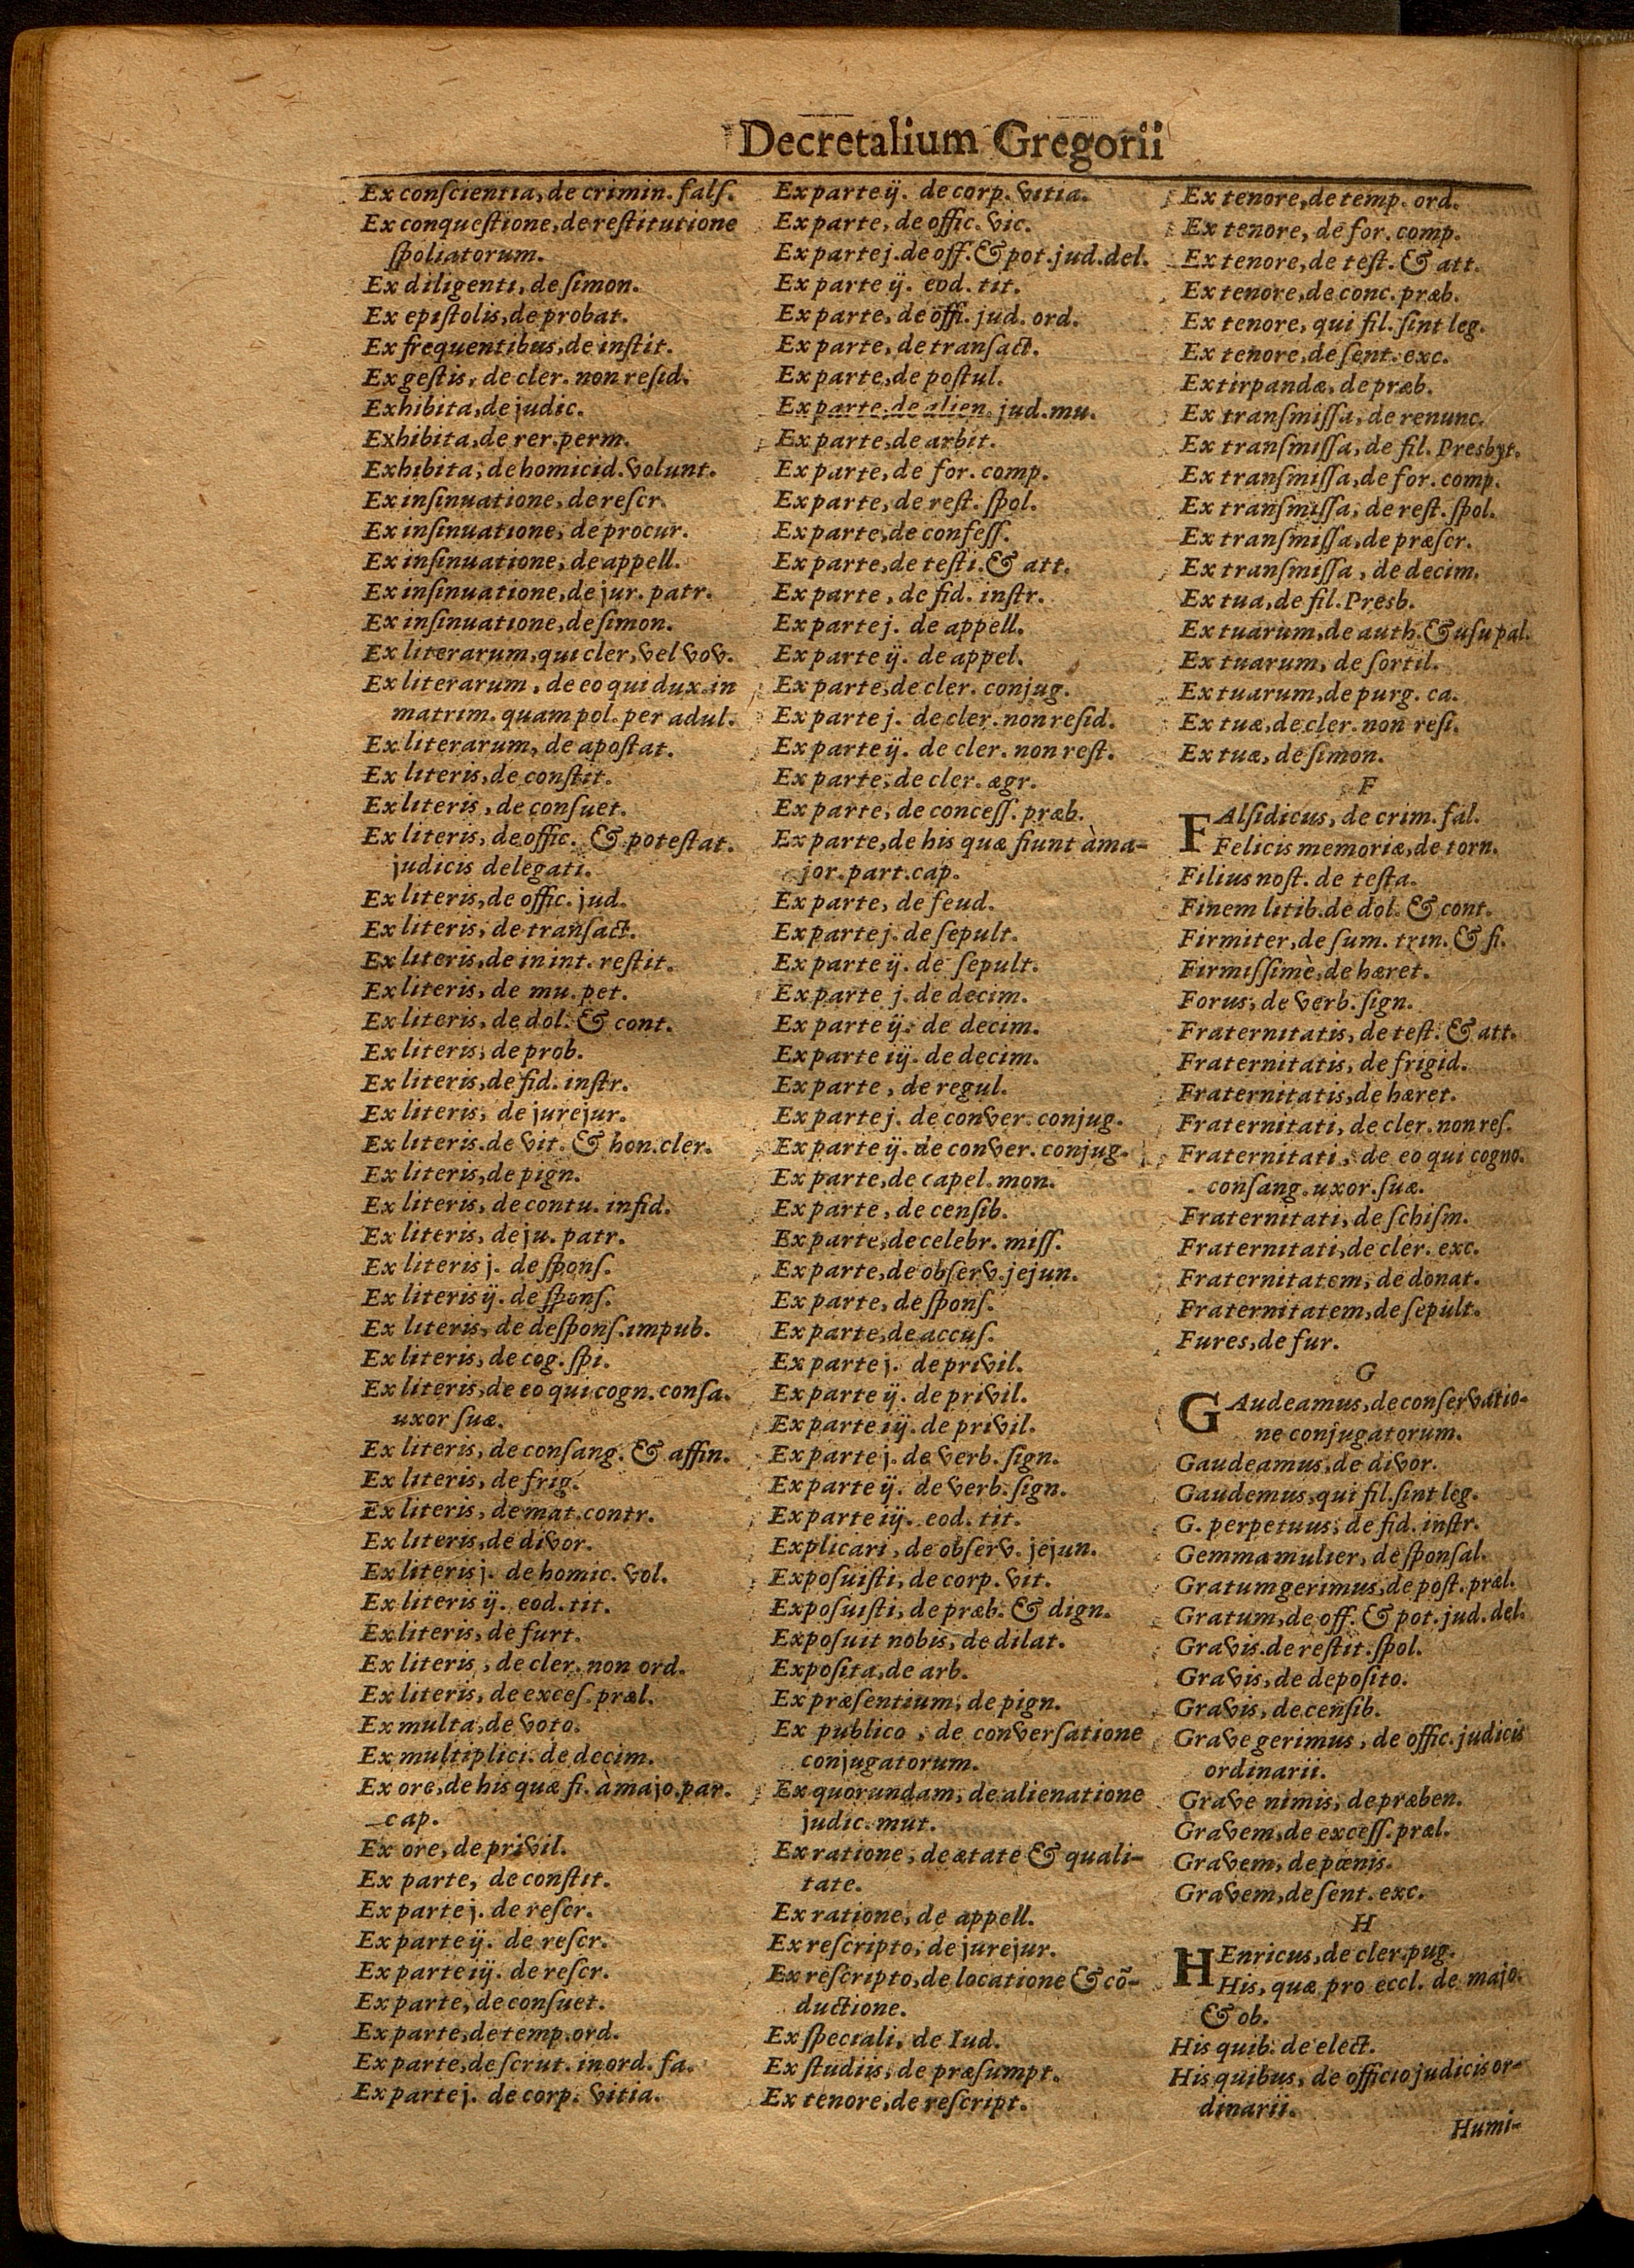 Decretalium Gregorii
Ex conſcientia, de crimin. falſ.
Ex conqueſtione, de reſtitutione
ſpoliatorum.
Ex diligenti, de ſimon.
Ex epiſtolis, de probat.
Ex frequentibus, de inſtit.
Ex geſtis, de cler. non reſid.
Exhibita, de judic.
Exhibita, de rer. perm.
Exhibita, de homicid. volunt.
Ex inſinuatione, de reſcr.
Ex inſinuatione, de procur.
Ex inſinuatione, de appell.
Ex inſinuatione, de jur. patr.
Ex inſinuatione, de ſimon.
Ex literarum, qui cler, vel vov.
Ex literarum, de eo qui dux. in
matrim. quam pol. per adul.
Ex literarum, de apoſtat.
Ex literis, de conſtit.
Ex literis, de conſuet.
Ex literis, de offic. & poteſtat.
judicis delegati.
Ex literis, de offic. jud.
Ex literis, de tranſact.
Ex literis, de in int. reſtit.
Ex literis, de mu. pet.
Ex literis, de dol. & cont.
Ex literis, de prob.
Ex literis, de fid. inſtr.
Ex literis, de jurejur.
Ex literis. de vit. & hon. cler.
Ex literis, de pign.
Ex literis, de contu. infid.
Ex literis, de ju. patr.
Ex literis j. de ſponſ.
Ex literis ij. de ſponſ.
Ex literis, de deſponſ. impub.
Ex literis, de cog. ſpi.
Ex literis, de eo qui cogn. conſa.
uxor ſuæ.
Ex literis, de conſang. & affin.
Ex literis, de frig.
Ex literis, de mat. contr.
Ex literis, de divor.
Ex literis j. de homic. vol.
Ex literis ij. eod. tit.
Ex literis, de furt.
Ex literis, de cler. non ord.
Ex literis, de exceſ. præl.
Ex multa, de voto.
Ex multiplici. de decim.
Ex ore, de his quæ fi. à majo. par.
cap.
Ex ore, de privil.
Ex parte, de conſtit.
Ex parte j. de reſcr.
Ex parte ij. de reſcr.
Ex parte iij. de reſcr.
Ex parte, de conſuet.
Ex parte, de temp. ord.
Ex parte, de ſcrut. in ord. fa.
Ex parte j. de corp. vitia.
Ex parte ij. de corp. vitia.
Ex parte, de offic. vic.
Ex parte j. de off. & pot. jud. del.
Ex parte ij. eod. tit.
Ex parte, de offi. jud. ord.
Ex parte, de tranſact.
Ex parte, de poſtul.
Ex parte, de alien. jud. mu.
Ex parte, de arbit.
Ex parte, de for. comp.
Ex parte, de reſt. ſpol.
Ex parte, de confeſſ.
Ex parte, de teſti. & att.
Ex parte, de fid. inſtr.
Ex parte j. de appell.
Ex parte ij. de appel.
Ex parte, de cler. conjug.
Ex parte j. de cler. non reſid.
Ex parte ij. de cler. non reſt.
Ex parte, de cler. ægr.
Ex parte, de conceſſ. præb.
Ex parte, de his quæ fiunt à ma-
jor. part. cap.
Ex parte, de feud.
Ex parte j. de ſepult.
Ex parte ij. de ſepult.
Ex parte j. de decim.
Ex parte ij. de decim.
Ex parte iij. de decim.
Ex parte, de regul.
Ex parte j. de conver. conjug.
Ex parte ij. de conver. conjug.
Ex parte, de capel. mon.
Ex parte, de cenſib.
Ex parte, de celebr. miſſ.
Ex parte, de obſerv. jejun.
Ex parte, de ſponſ.
Ex parte, de accuſ.
Ex parte j. de privil.
Ex parte ij. de privil.
Ex parte iij. de privil.
Ex parte j. de verb. ſign.
Ex parte ij. de verb. ſign.
Ex parte iij. eod. tit.
Explicari, de obſerv. jejun.
Expoſuiſti, de corp. vit.
Expoſuiſti, de præb. & dign.
Expoſuit nobis, de dilat.
Expoſita, de arb.
Ex præſentium, de pign.
Ex publico, de converſatione
conjugatorum.
Ex quorundam, de alienatione
judic. mut.
Ex ratione, de ætate & quali-
tate.
Ex ratione, de appell.
Ex reſcripto, de jurejur.
Ex reſcripto, de locatione & cõ-
ductione.
Ex ſpeciali, de Iud.
Ex ſtudiis, de præſumpt.
Ex tenore, de reſcript.
Ex tenore, de temp. ord.
Ex tenore, de for. comp.
Ex tenore, de teſt. & att.
Ex tenore, de conc. præb.
Ex tenore, qui fil. ſint leg.
Ex tenore, de ſent. exc.
Extirpandæ, de præb.
Ex tranſmiſſa, de renunc.
Ex tranſmiſſa, de fil. Presbyt.
Ex tranſmiſſa, de for. comp.
Ex tranſmiſſa, de reſt. ſpol.
Ex tranſmiſſa, de præſcr.
Ex tranſmiſſa, de decim.
Ex tua, de fil. Presb.
Ex tuarum, de auth. & uſu pal.
Ex tuarum, de ſortil.
Ex tuarum, de purg. ca.
Ex tuæ, de cler. non reſi.
Ex tuæ, de ſimon.
F
FAlſidicus, de crim. fal.
Felicis memoriæ, de torn.
Filius noſt. de teſta.
Finem litib. de dol. & cont.
Firmiter, de ſum. trin. & fi.
Firmiſſimè, de hæret.
Forus, de verb. ſign.
Fraternitatis, de teſt. & att.
Fraternitatis, de frigid.
Fraternitatis, de hæret.
Fraternitati, de cler. non reſ.
Fraternitati, de eo qui cogno.
conſang. uxor. ſuæ.
Fraternitati, de ſchiſm.
Fraternitati, de cler. exc.
Fraternitatem, de donat.
Fraternitatem, de ſepult.
Fures, de fur.
G
GAudeamus, de conſervatio-
ne conjugatorum.
Gaudeamus, de divor.
Gaudemus, qui fil. ſint leg.
G. perpetuus, de fid. inſtr.
Gemma mulier, de ſponſal.
Gratum gerimus, de poſt. præl.
Gratum, de off. & pot. jud. del.
Gravis. de reſtit. ſpol.
Gravis, de depoſito.
Gravis, de cenſib.
Grave gerimus, de offic. judicis
ordinarii.
Grave nimis, de præben.
Gravem, de exceſſ. præl.
Gravem, de pœnis.
Gravem, de ſent. exc.
H
HEnricus, de cler. pug.
His, quæ pro eccl. de majo.
& ob.
His quib. de elect.
His quibus, de officio judicis or-
dinarii.
Humi-